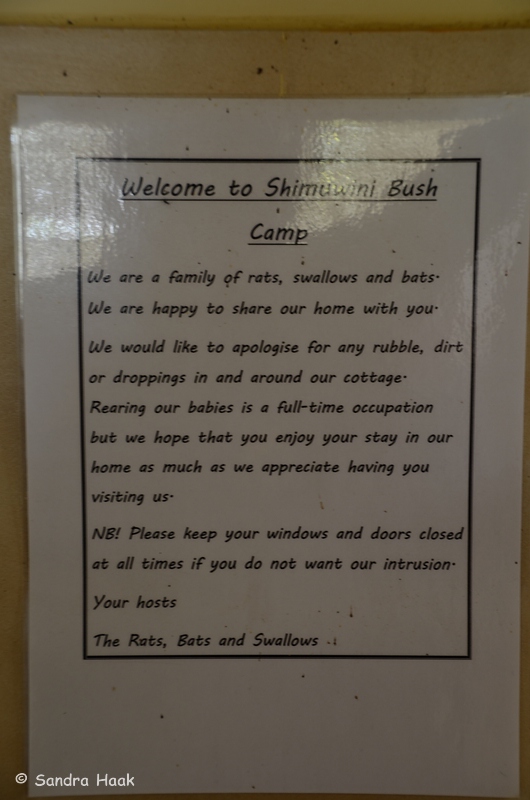 Welcome to Shimuwini Bush
Camp
We are a family of rats, swallows and bats.
We are happy to share our home with you.
We would like to apologise for any rubble, dirt
or droppings in and around our cottage.
Rearing our babies is a full-time occupation
but we hope that you enjoy your stay in our
home as much as we appreciate having you
visiting us.
NB! Please keep your windows and doors closed
at all times if you do not want our intrusion.
Your hosts
The Rats, Bats and Swallows
© Sandra Haak